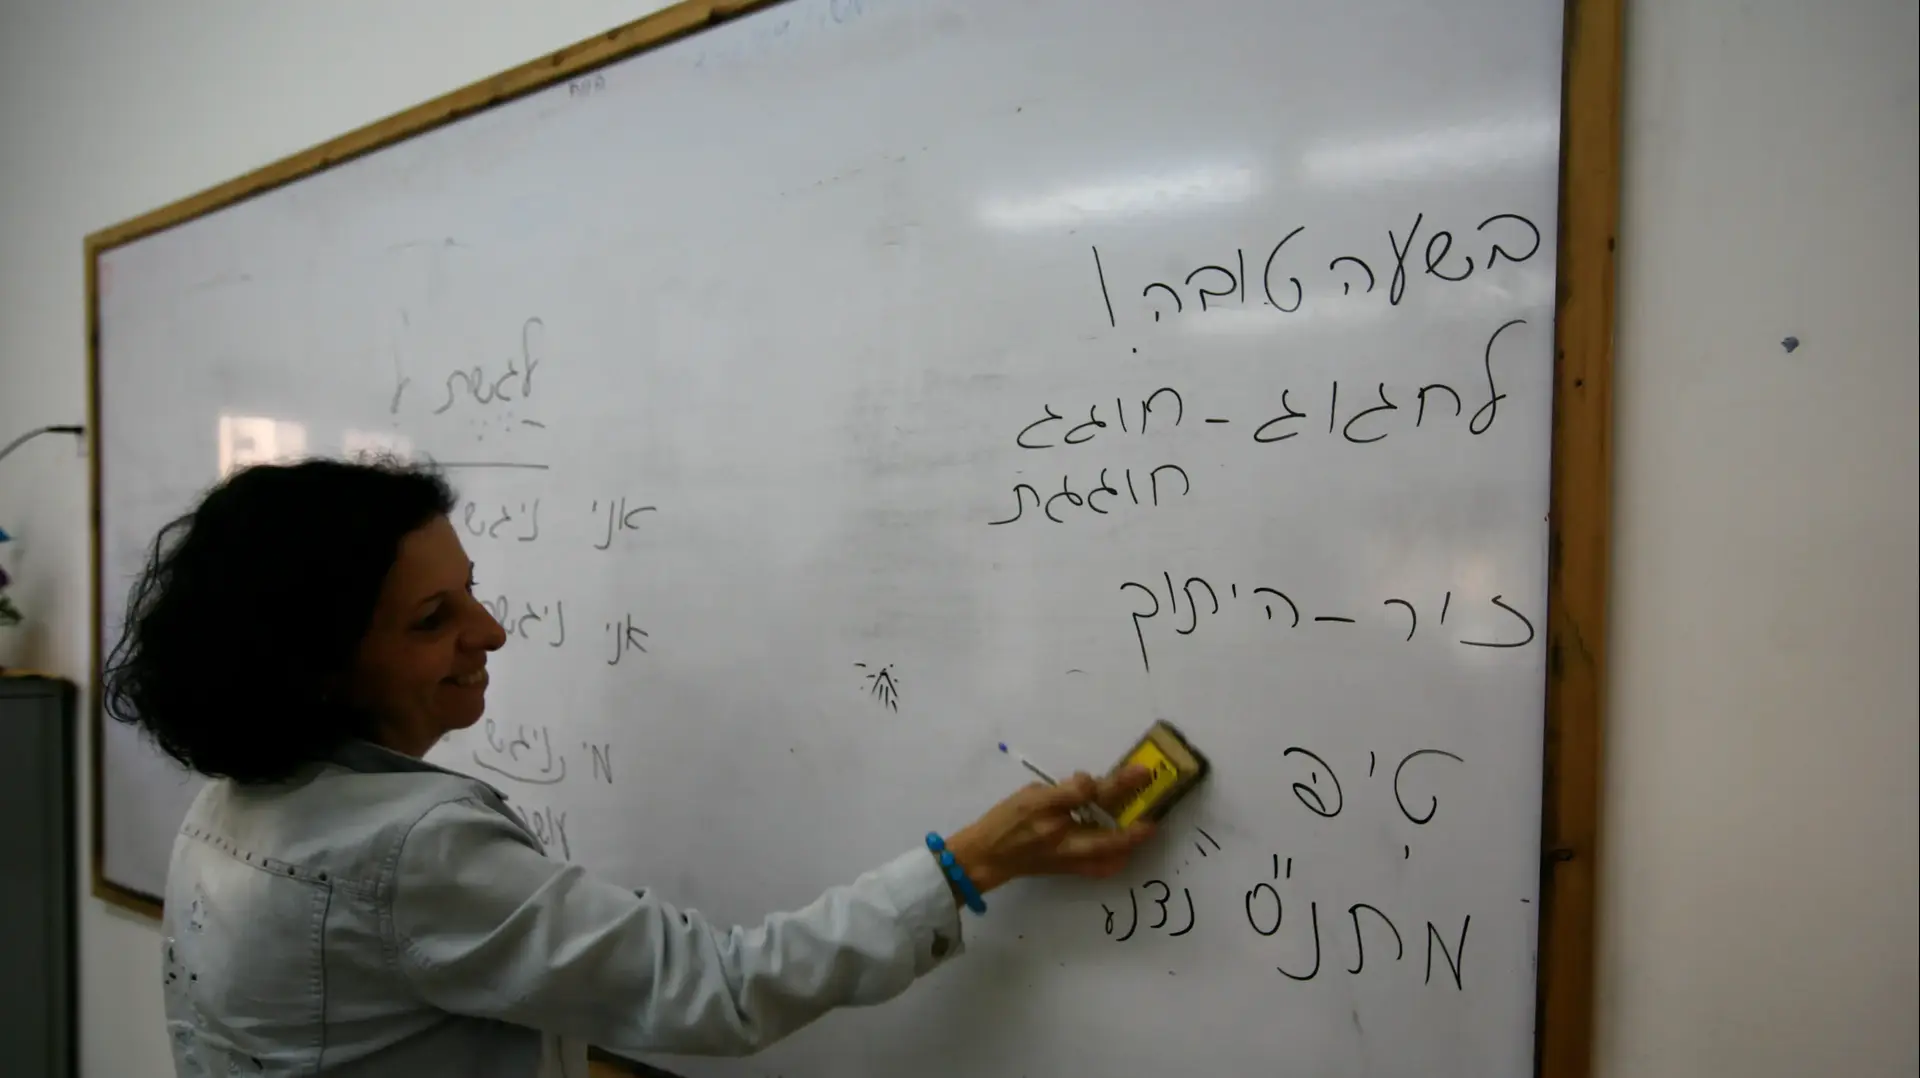 בשעה טובה!
לחגוג - חוגג
חוגגת
כיור - היתוך
טיפ
מתנ"ס
לגשת ל
אני ניגש
אני ניגש
מי ניגש